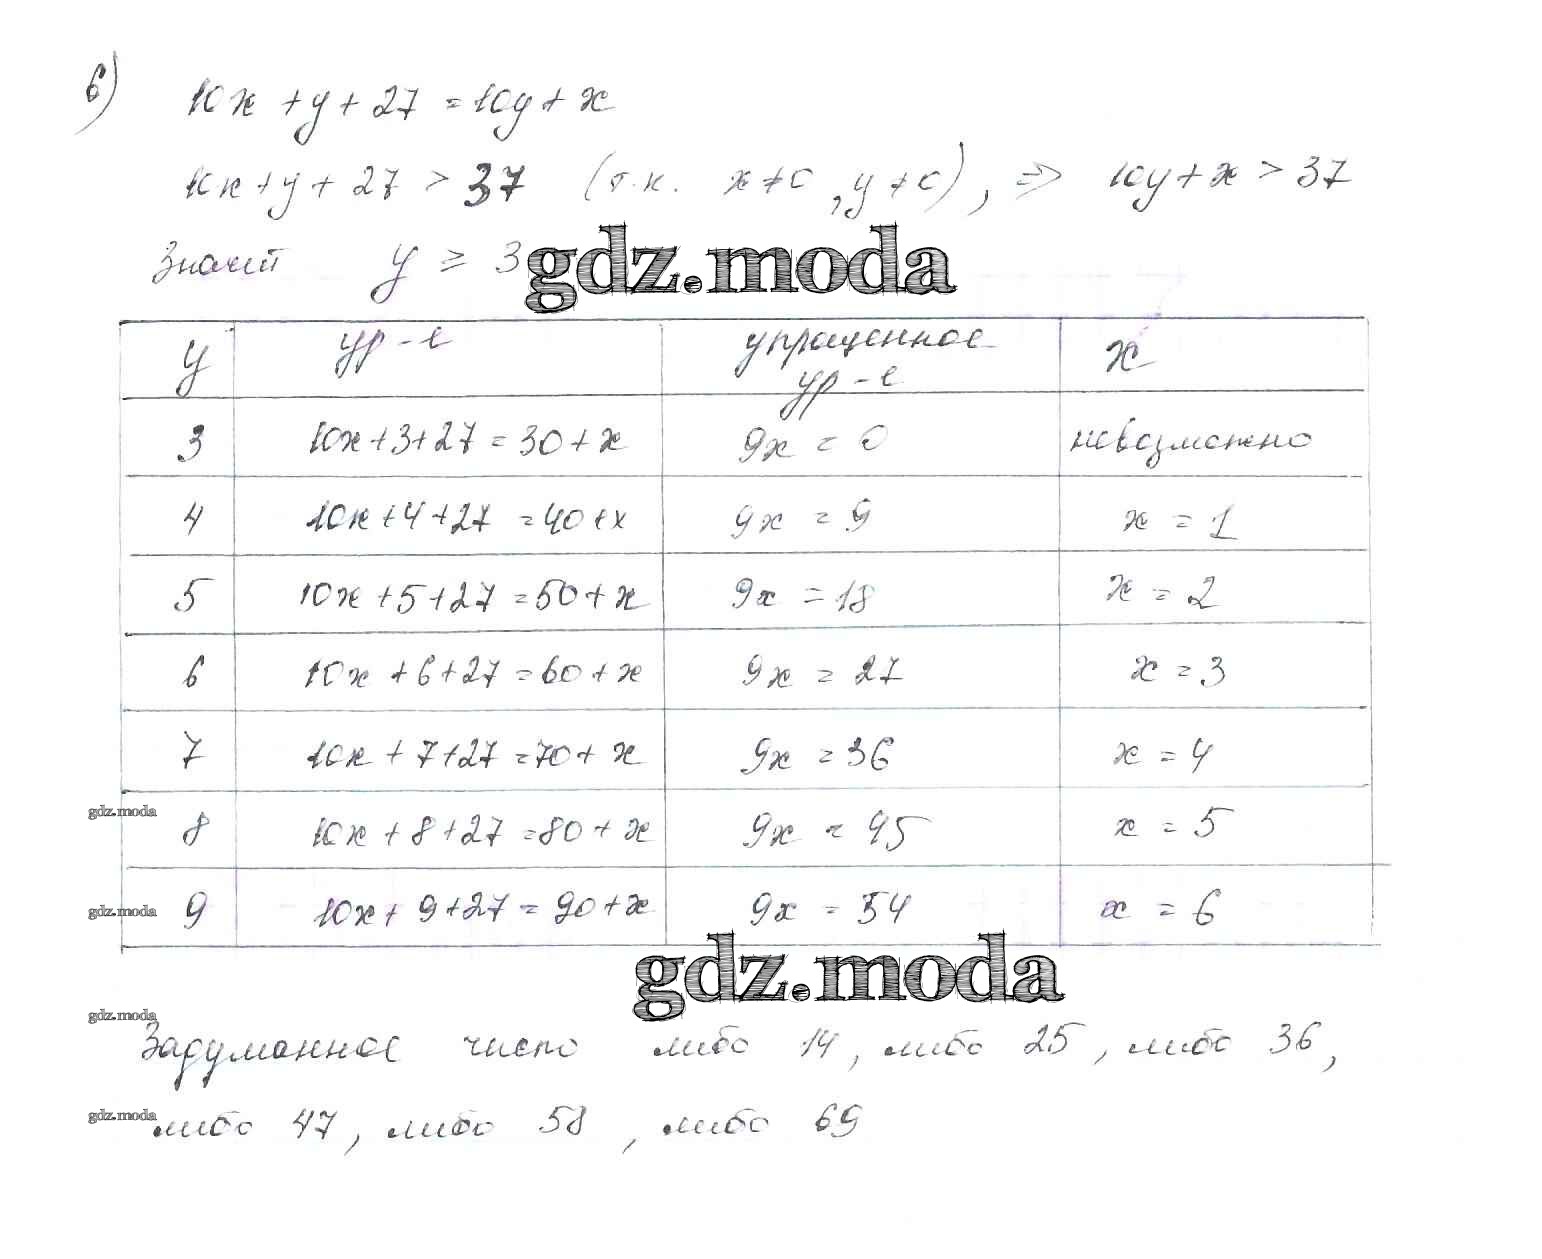 б)
10x + y + 27 = 10y + x
10x + y + 27 > 37 (т.к. x ≠ 0, y ≠ 0), => 10y + x > 37
Значит y ≥ 3
gdz.moda
y ур-е упращенное ур-е x
3 10x+3+27 = 30+x 9x = 0 невозможно
4 10x+4+27 = 40+x 9x = 9 x = 1
5 10x+5+27 = 50+x 9x = 18 x = 2
6 10x+6+27 = 60+x 9x = 27 x = 3
7 10x+7+27 = 70+x 9x = 36 x = 4
gdz.moda
8 10x+8+27 = 80+x 9x = 45 x = 5
gdz.moda
9 10x+9+27 = 90+x 9x = 54 x = 6
gdz.moda
gdz.moda
Задуманное число либо 14, либо 25, либо 36,
gdz.moda
либо 47, либо 58, либо 69